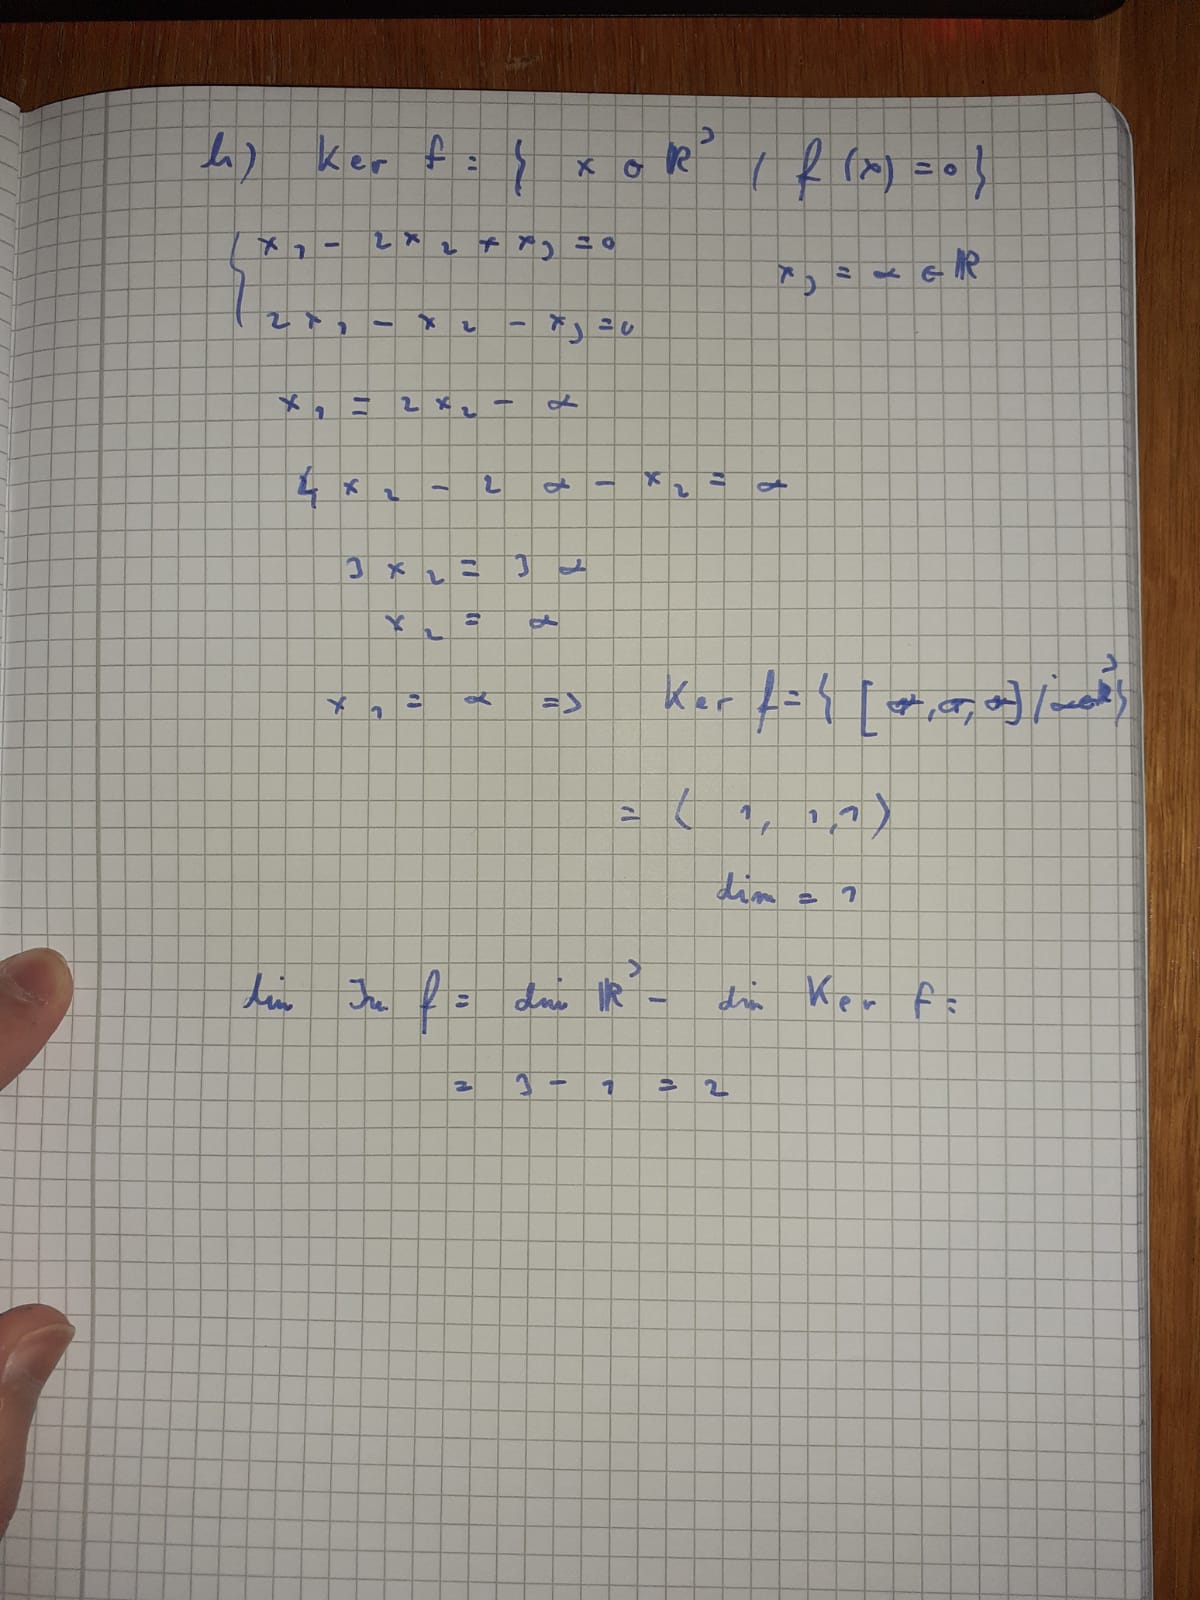 b) Ker f = { x ∈ ℝ³ / f(x) = 0 }
{ x₁ - 2x₂ + x₃ = 0    x₃ = α ∈ ℝ
2x₁ - x₂ - x₃ = 0
x₁ = 2x₂ - α
4x₂ - 2α - x₂ = α
3x₂ = 3α
x₂ = α
x₁ = α => Ker f = { [α, α, α] / α∈ℝ³ }
= ⟨ 1, 1, 1 ⟩
dim = 1
dim Im f = dim ℝ³ - dim Ker f =
= 3 - 1 = 2